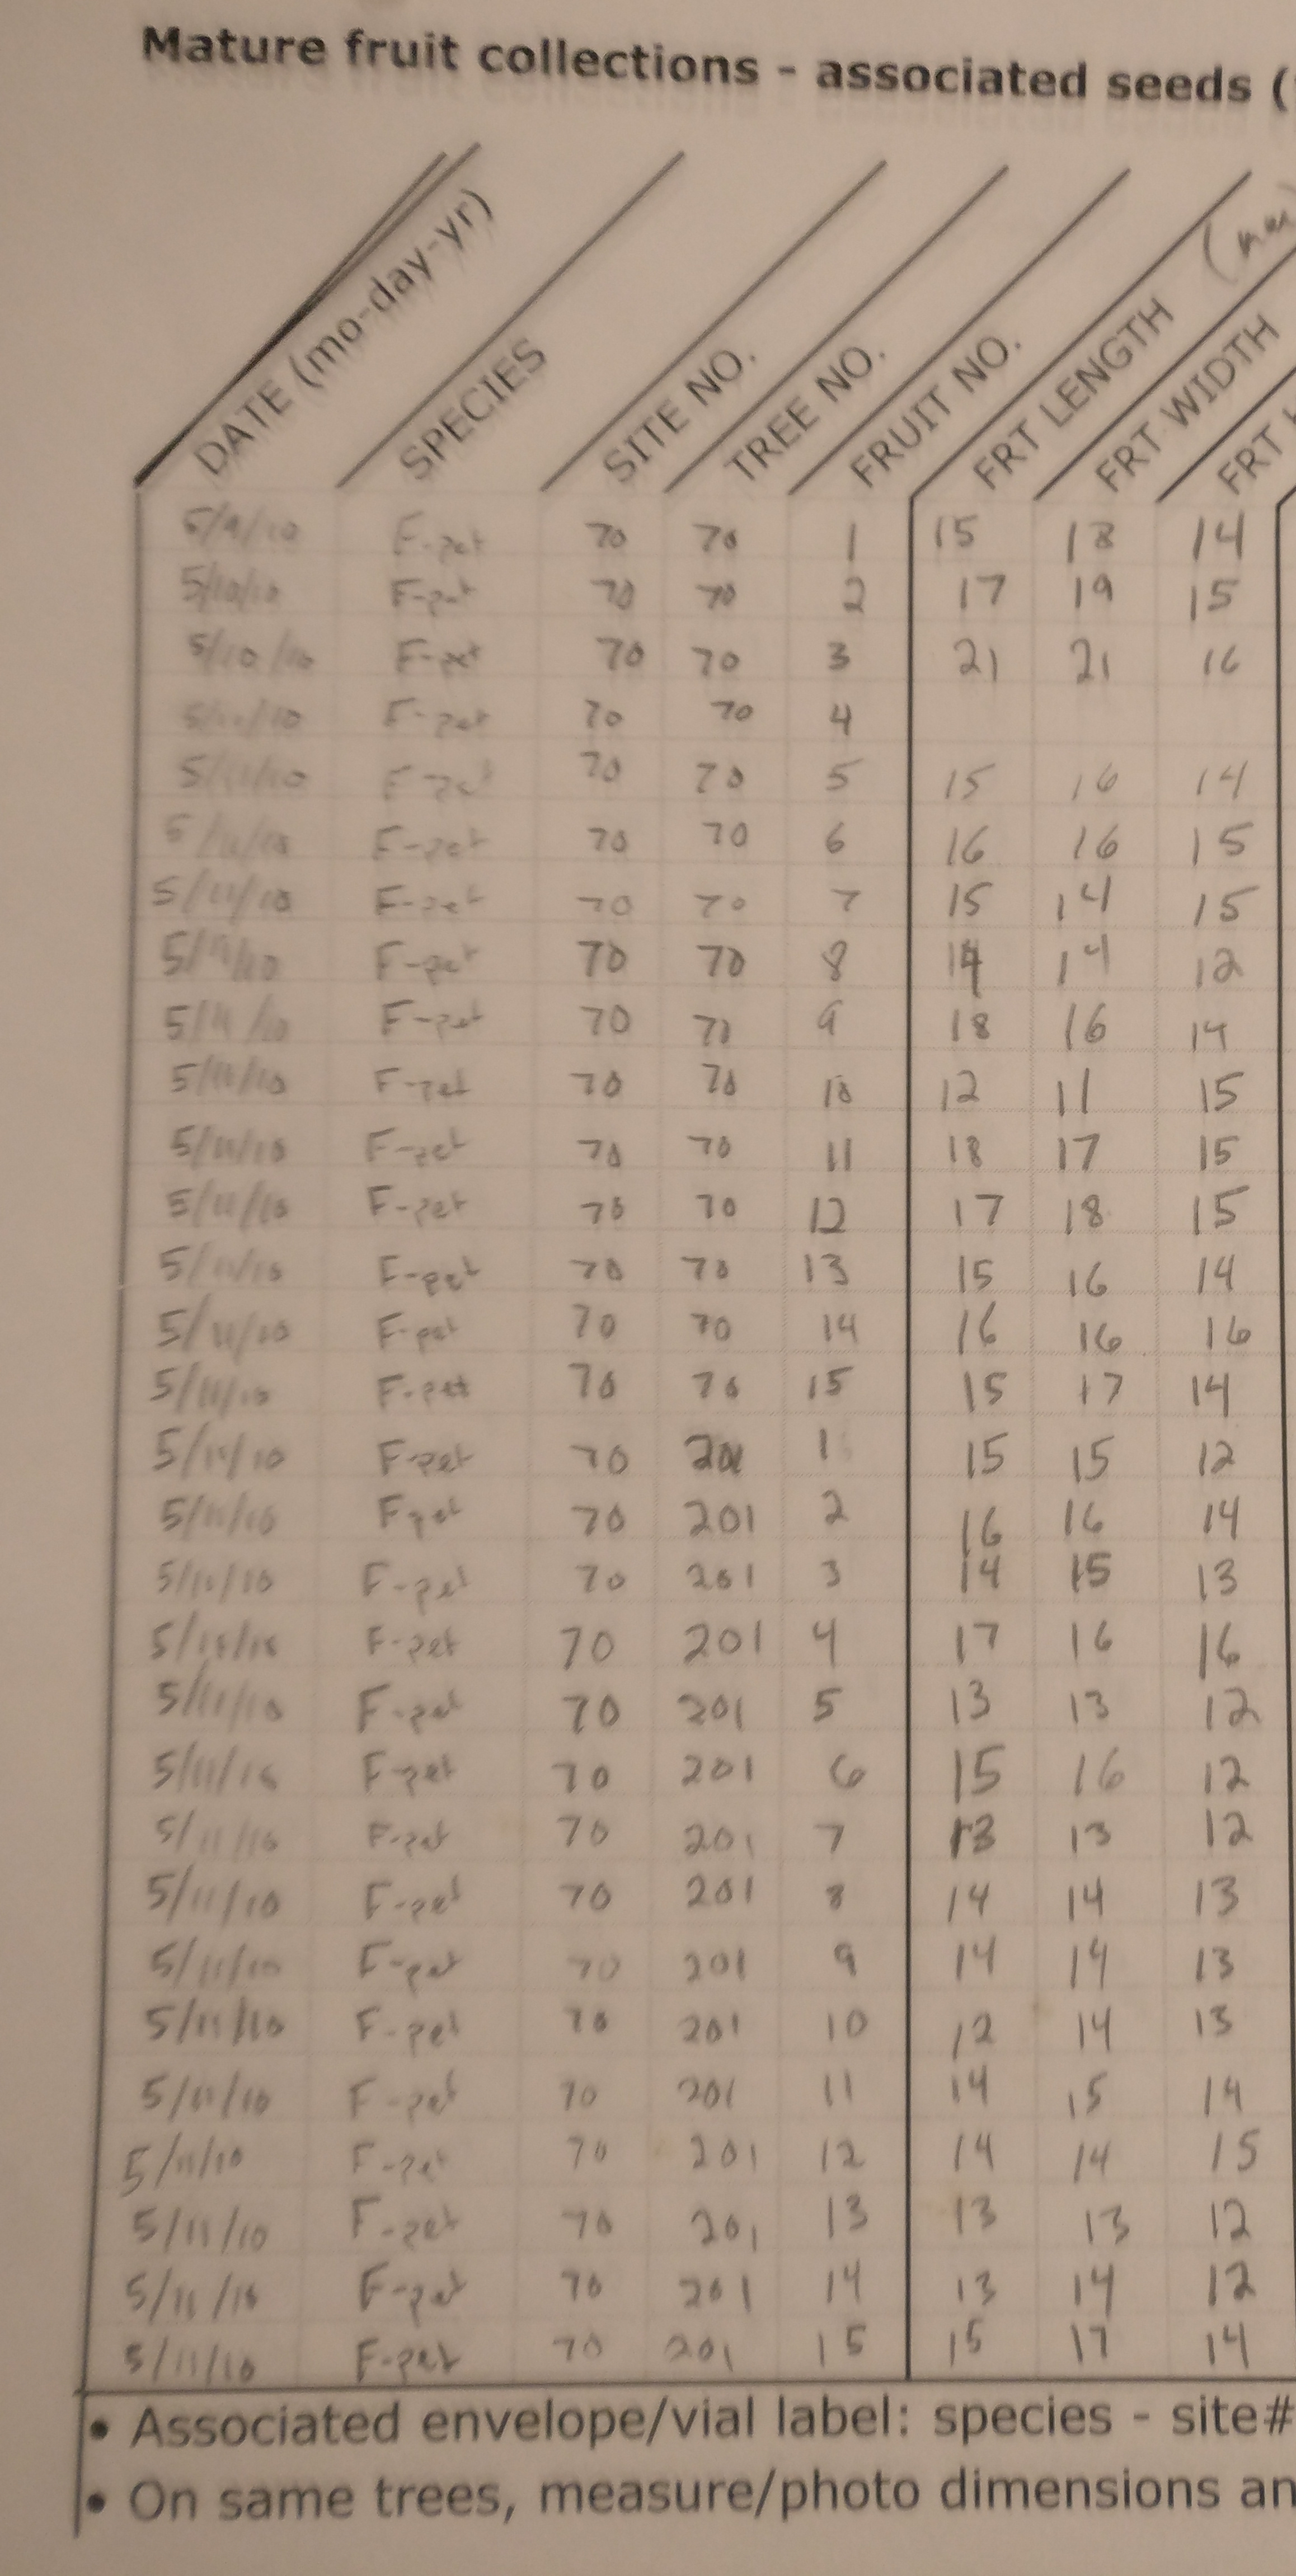 Mature fruit collections - associated seeds (
DATE (mo-day-yr) SPECIES SITE NO. TREE NO. FRUIT NO. FRT LENGTH FRT WIDTH FRT
(mm)
5/9/10 F-pet 70 70 1 15 18 14
5/10/10 F-pet 70 70 2 17 19 15
5/10/10 F-pet 70 70 3 21 21 16
F-pet 70 70 4
5/11/10 F-pet 70 70 5 15 16 14
5/11/10 F-pet 70 70 6 16 16 15
5/11/10 F-pet 70 70 7 15 14 15
5/11/10 F-pet 70 70 8 14 14 12
5/11/10 F-pet 70 70 9 18 16 14
5/11/10 F-pet 70 70 10 12 11 15
5/11/10 F-pet 70 70 11 18 17 15
5/11/10 F-pet 70 70 12 17 18 15
5/11/10 F-pet 70 70 13 15 16 14
5/11/10 F-pet 70 70 14 16 16 16
5/11/10 F-pet 70 70 15 15 17 14
5/11/10 F-pet 70 201 1 15 15 12
5/11/10 F-pet 70 201 2 16 16 14
5/11/10 F-pet 70 201 3 14 15 13
5/11/10 F-pet 70 201 4 17 16 16
5/11/10 F-pet 70 201 5 13 13 12
5/11/10 F-pet 70 201 6 15 16 12
5/11/10 F-pet 70 201 7 13 13 12
5/11/10 F-pet 70 201 8 14 14 13
5/11/10 F-pet 70 201 9 14 14 13
5/11/10 F-pet 70 201 10 12 14 13
5/11/10 F-pet 70 201 11 14 15 14
5/11/10 F-pet 70 201 12 14 14 15
5/11/10 F-pet 70 201 13 13 13 12
5/11/10 F-pet 70 201 14 13 14 12
5/11/10 F-pet 70 201 15 15 17 14
• Associated envelope/vial label: species - site#
• On same trees, measure/photo dimensions an